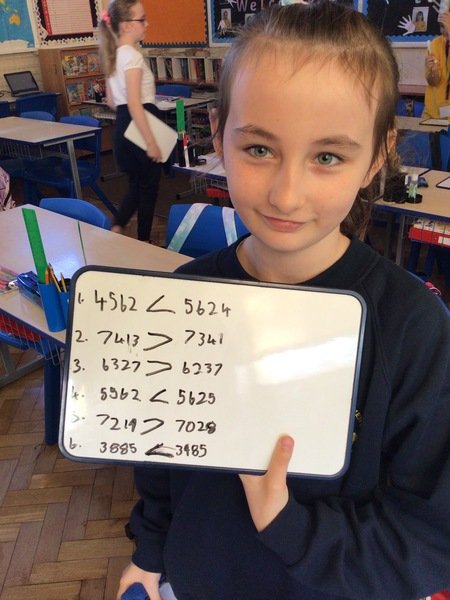 Welcome
1. 4562 < 5624
2. 7413 > 7341
3. 6327 > 6237
4. 5562 < 5625
5. 7219 > 7028
6. 3885 < 3985